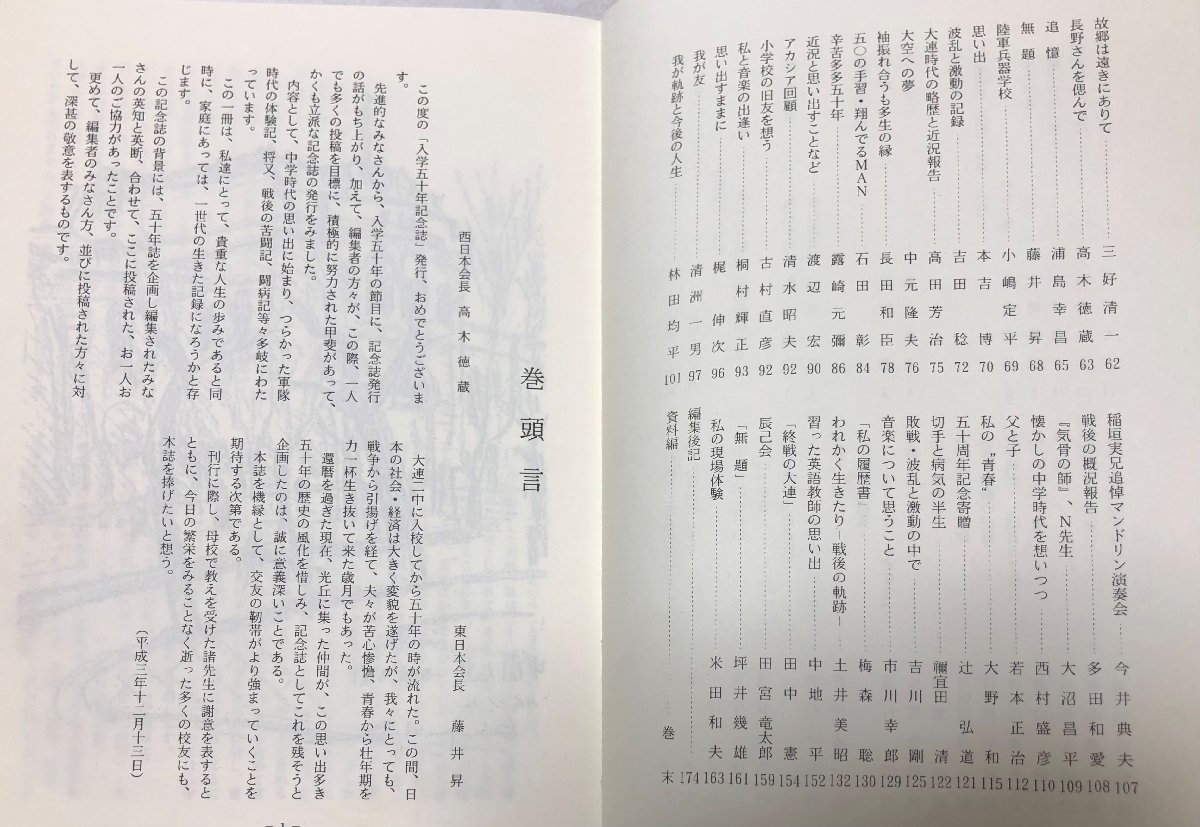 故郷は遠きにありて……三好清一 62
長野さんを偲んで……高木徳蔵 63
追憶……浦島幸昌 65
無題……藤井昇 68
陸軍兵器学校……小嶋定平 69
思い出……本吉博 70
波乱と激動の記録……吉田稔 72
大連時代の略歴と近況報告……高田芳治 75
大空への夢……中元隆夫 76
袖振れ合うも多生の縁……長田和臣 78
五〇の手習・翔んでるMAN……石田彰 84
辛苦多多五十年……露崎元彌 86
近況と思い出すことなど……渡辺宏 90
アカシア回顧……清水昭夫 92
小学校の旧友を想う……古村直彦 92
私と音楽の出逢い……桐村輝正 93
思い出すままに……梶伸次 96
我が友……清洲一男 97
我が軌跡と今後の人生……林田均平 101
稲垣実兄追悼マンドリン演奏会……今井典夫 107
戦後の概況報告……多田和愛 108
『気骨の師』、N先生……大沼昌平 109
懐かしの中学時代を想いつつ……西村盛彦 110
父と子……若本正治 112
私の〝青春〟……大野和 115
五十周年記念寄贈……辻弘道 121
切手と病気の半生……禰宜田清 122
敗戦・波乱と激動の中で……吉川剛 125
音楽について思うこと……市川幸郎 129
「私の履歴書」……梅森聡 130
われかく生きたり―戦後の軌跡―……土井美昭 132
習った英語教師の思い出……中地平 152
「終戦の大連」……田中憲 154
辰己会……田宮竜太郎 159
「無題」……坪井幾雄 161
私の現場体験……米田和夫 163
編集後記……174
資料編……巻末
巻頭言
西日本会長 高木徳蔵
この度の「入学五十年記念誌」発行、おめでとうございま
す。
先進的なみなさんから、入学五十年の節目に、記念誌発行
の話がもち上がり、加えて、編集者の方々が、この際、一人
でも多くの投稿を目標に、積極的に努力された甲斐があって、
かくも立派な記念誌の発行をみました。
内容として、中学時代の思い出に始まり、つらかった軍隊
時代の体験記、将又、戦後の苦闘記、闘病記等々多岐にわた
っています。
この一冊は、私達にとって、貴重な人生の歩みであると同
時に、家庭にあっては、一世代の生きた記録になろうかと存
じます。
この記念誌の背景には、五十年誌を企画し編集されたみな
さんの英知と英断、合わせて、ここに投稿された、お一人お
一人のご協力があったことです。
更めて、編集者のみなさん方、並びに投稿された方々に対
して、深甚の敬意を表するものです。
東日本会長 藤井昇
大連二中に入校してから五十年の時が流れた。この間、日
本の社会・経済は大きく変貌を遂げたが、我々にとっても、
戦争から引揚げを経て、夫々が苦心惨憺、青春から壮年期を
力一杯生き抜いて来た歳月でもあった。
還暦を過ぎた現在、光丘に集った仲間が、この思い出多き
五十年の歴史の風化を惜しみ、記念誌としてこれを残そうと
企画したのは、誠に意義深いことである。
本誌を機縁として、交友の靭帯がより強まっていくことを
期待する次第である。
刊行に際し、母校で教えを受けた諸先生に謝意を表すると
ともに、今日の繁栄をみることなく逝った多くの校友にも、
本誌を捧げたいと想う。
〔平成三年十二月十三日〕
―1―